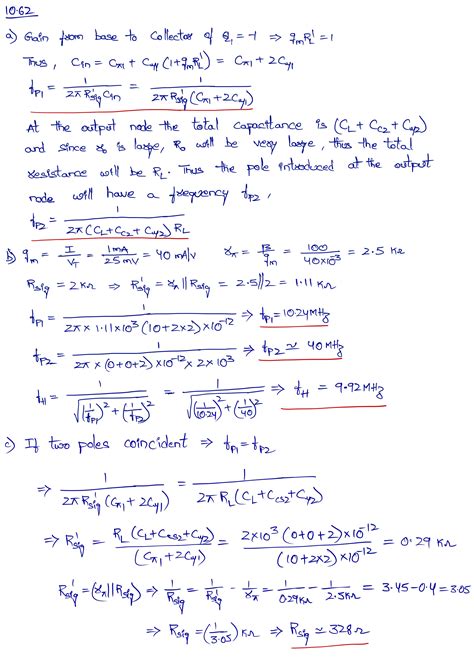 10.62
a) Gain from base to collector of Q₁ = -1 ⇒ gₘR'L = 1
Thus, Cin = Cπ1 + Cμ1 (1 + gₘR'L) = Cπ1 + 2Cμ1
fP1 = 1 / (2π R'sig Cin) = 1 / (2π R'sig (Cπ1 + 2Cμ1))
At the output node the total capacitance is (CL + Cc2 + Cμ2)
and since ro is large, Ro will be very large, thus the total
resistance will be RL. Thus the pole introduced at the output
node will have a frequency fP2,
fP2 = 1 / (2π (CL + Cc2 + Cμ2) RL)
b) gₘ = I / VT = 1mA / 25mV = 40 mA/V rπ = β / gₘ = 100 / (40×10⁻³) = 2.5 KΩ
Rsig = 2KΩ ⇒ R'sig = rπ || Rsig = 2.5||2 = 1.11 KΩ
fP1 = 1 / (2π × 1.11×10³ (10+2×2)×10⁻¹²) ⇒ fP1 = 10.24MHz
fP2 = 1 / (2π × (0+0+2)×10⁻¹² × 2×10³) ⇒ fP2 ≃ 40MHz
fH = 1 / √((1/fP1)² + (1/fP2)²) = 1 / √((1/10.24)² + (1/40)²) ⇒ fH = 9.92MHz
c) If two poles coincident ⇒ fP1 = fP2
⇒ 1 / (2π R'sig (Cπ1 + 2Cμ1)) = 1 / (2π RL (CL + Ccs2 + Cμ2))
⇒ R'sig = RL (CL + Ccs2 + Cμ2) / (Cπ1 + 2Cμ1) = 2×10³ (0+0+2)×10⁻¹² / ((10+2×2)×10⁻¹²) = 0.29 KΩ
R'sig = (rπ || Rsig) ⇒ 1/Rsig = 1/R'sig - 1/rπ = 1/0.29KΩ - 1/2.5KΩ = 3.45-0.4 = 3.05
⇒ Rsig = (1/3.05) KΩ ⇒ Rsig ≃ 328Ω